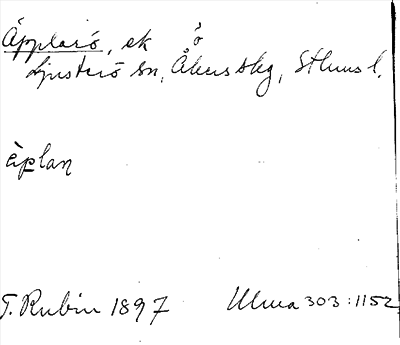 Äpplarö, ek ö
Ljusterö sn, Åkers skg, Sthlms l.
äplan
T. Rubin 1897 Ulma 303:1152